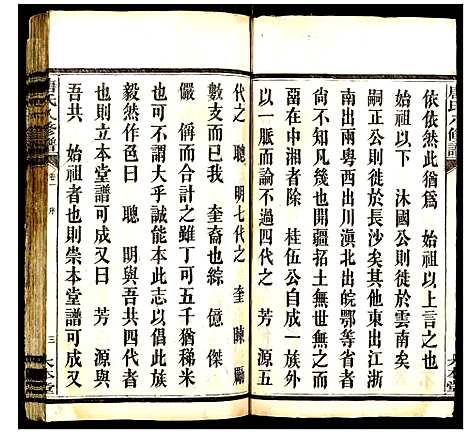 唐氏八修譜
依依然此猶爲 始祖以上言之也
始祖以下 沐國公則徙於雲南矣
嗣正公則徙於長沙矣其他東出江浙
南出兩粵西出川滇北出皖鄂等省者
尚不知凡幾也開疆拓土無世無之然
而在中湘者除 桂伍公一支外其餘
以一脈而論不過四代之 芳 源五
代之 聰 明七代之 奎 陳勵
數支而已我 奎裔也綜 億 傑
儼 儔而合計之雖丁可五千猶稊米
然而不謂大乎誠能本此志以倡此族
毅然作色曰 聰 明與吾共四代者
也則本堂譜可成又曰 芳 源與
吾共 始祖者也則崇本堂譜可成又
唐氏八修譜
卷一 序
三
大本堂